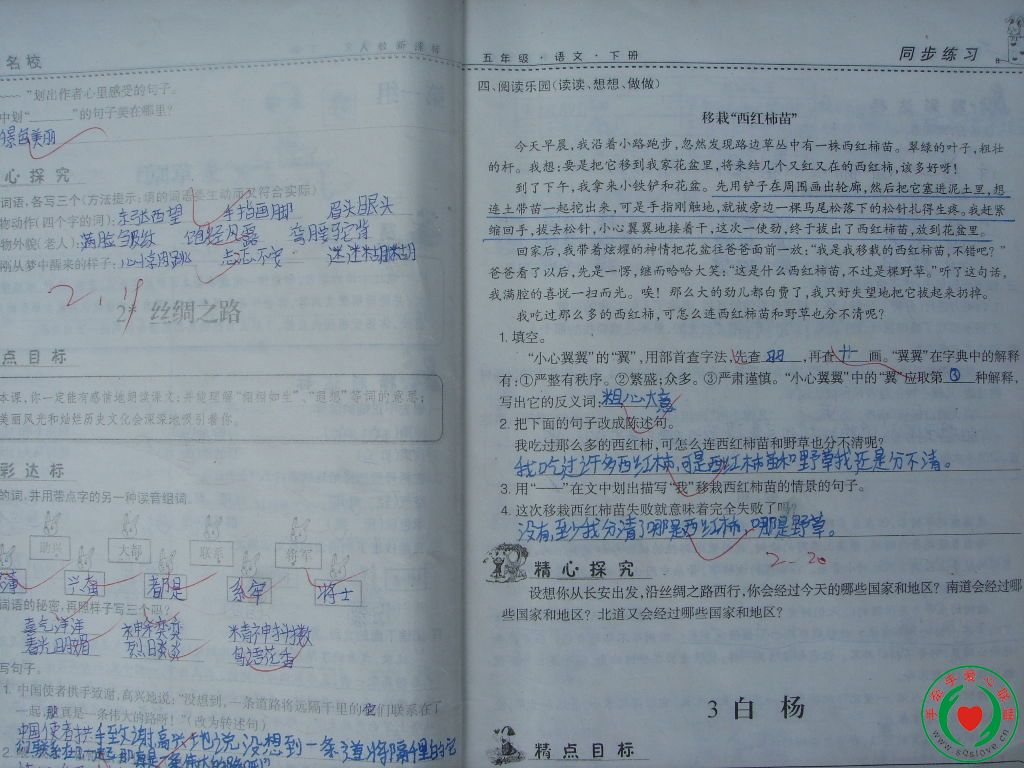 名校
人教新课标
"划出作者心里感受的句子。
中划"______"的句子美在哪里?
景色美丽
心探究
词语,各写三个(方法提示:填的词语要生动而又符合实际)
物动作(四个字的词):东张西望 手指画脚 眉头眼头
物外貌(老人):满脸皱纹 饱经风霜 弯腰驼背
刚从梦中醒来的样子:心惊肉跳 忐忑不安 迷迷糊糊
2.19
2* 丝绸之路
点目标
本课,你一定能有感情地朗读课文;并能理解"栩栩如生"、"遐想"等词的意思;
美丽风光和灿烂历史文化会深深地吸引着你。
彩达标
的词,并用带点字的另一种读音组词。
助兴 大都 联系 将军
兴奋 都是 系牢 将士
词语的秘密,再照样子写三个吗?
喜气洋洋 神采奕奕 精神抖擞
春光明媚 烈日炎炎 鸟语花香
写句子。
1. 中国使者拱手致谢,高兴地说:"没想到,一条道路将远隔千里的它们联系在了
一起,那真是一条伟大的路呀!"(改为转述句)
中国使者拱手致谢,高兴地说,没想到一条道将隔千里的它
们联系在一起,那真是一条伟大的路呀
五年级·语文·下册
同步练习
四、阅读乐园(读读、想想、做做)
移栽"西红柿苗"
今天早晨,我沿着小路跑步,忽然发现路边草丛中有一株西红柿苗。翠绿的叶子,粗壮
的杆。我想:要是把它移到我家花盆里,将来结几个又红又在的西红柿,该多好呀!
到了下午,我拿来小铁铲和花盆。先用铲子在周围画出轮廓,然后把它塞进泥土里,想
连土带苗一起挖出来,可是手指刚触地,就被旁边一棵马尾松落下的松针扎得生疼。我赶紧
缩回手,拔去松针,小心翼翼地接着干,这次一使劲,终于拔出了西红柿苗,放到花盆里。
回家后,我带着炫耀的神情把花盆往爸爸面前一放:"我是我移栽的西红柿苗,不错吧?"
爸爸看了以后,先是一愣,继而哈哈大笑:"这是什么西红柿苗,不过是棵野草。"听了这句话,
我满腔的喜悦一扫而光。唉!那么大的劲儿都白费了,我只好失望地把它拔起来扔掉。
我吃过那么多的西红柿,可怎么连西红柿苗和野草也分不清呢?
1. 填空。
"小心翼翼"的"翼",用部首查字法,先查 羽 ,再查 十一 画。"翼翼"在字典中的解释
有:①严整有秩序。②繁盛;众多。③严肃谨慎。"小心翼翼"中的"翼"应取第 ③ 种解释,
写出它的反义词: 粗心大意
2. 把下面的句子改成陈述句。
我吃过那么多的西红柿,可怎么连西红柿苗和野草也分不清呢?
我吃过许多西红柿,可是西红柿苗和野草我还是分不清。
3. 用"——"在文中划出描写"我"移栽西红柿苗的情景的句子。
4. 这次移栽西红柿苗失败就意味着完全失败了吗?
没有,至少我分清了哪是西红柿,哪是野草。
2-20
精心探究
设想你从长安出发,沿丝绸之路西行,你会经过今天的哪些国家和地区?南道会经过哪
些国家和地区?北道又会经过哪些国家和地区?
3 白杨
精点目标
手拉手爱心联盟
www.sqslove.cn